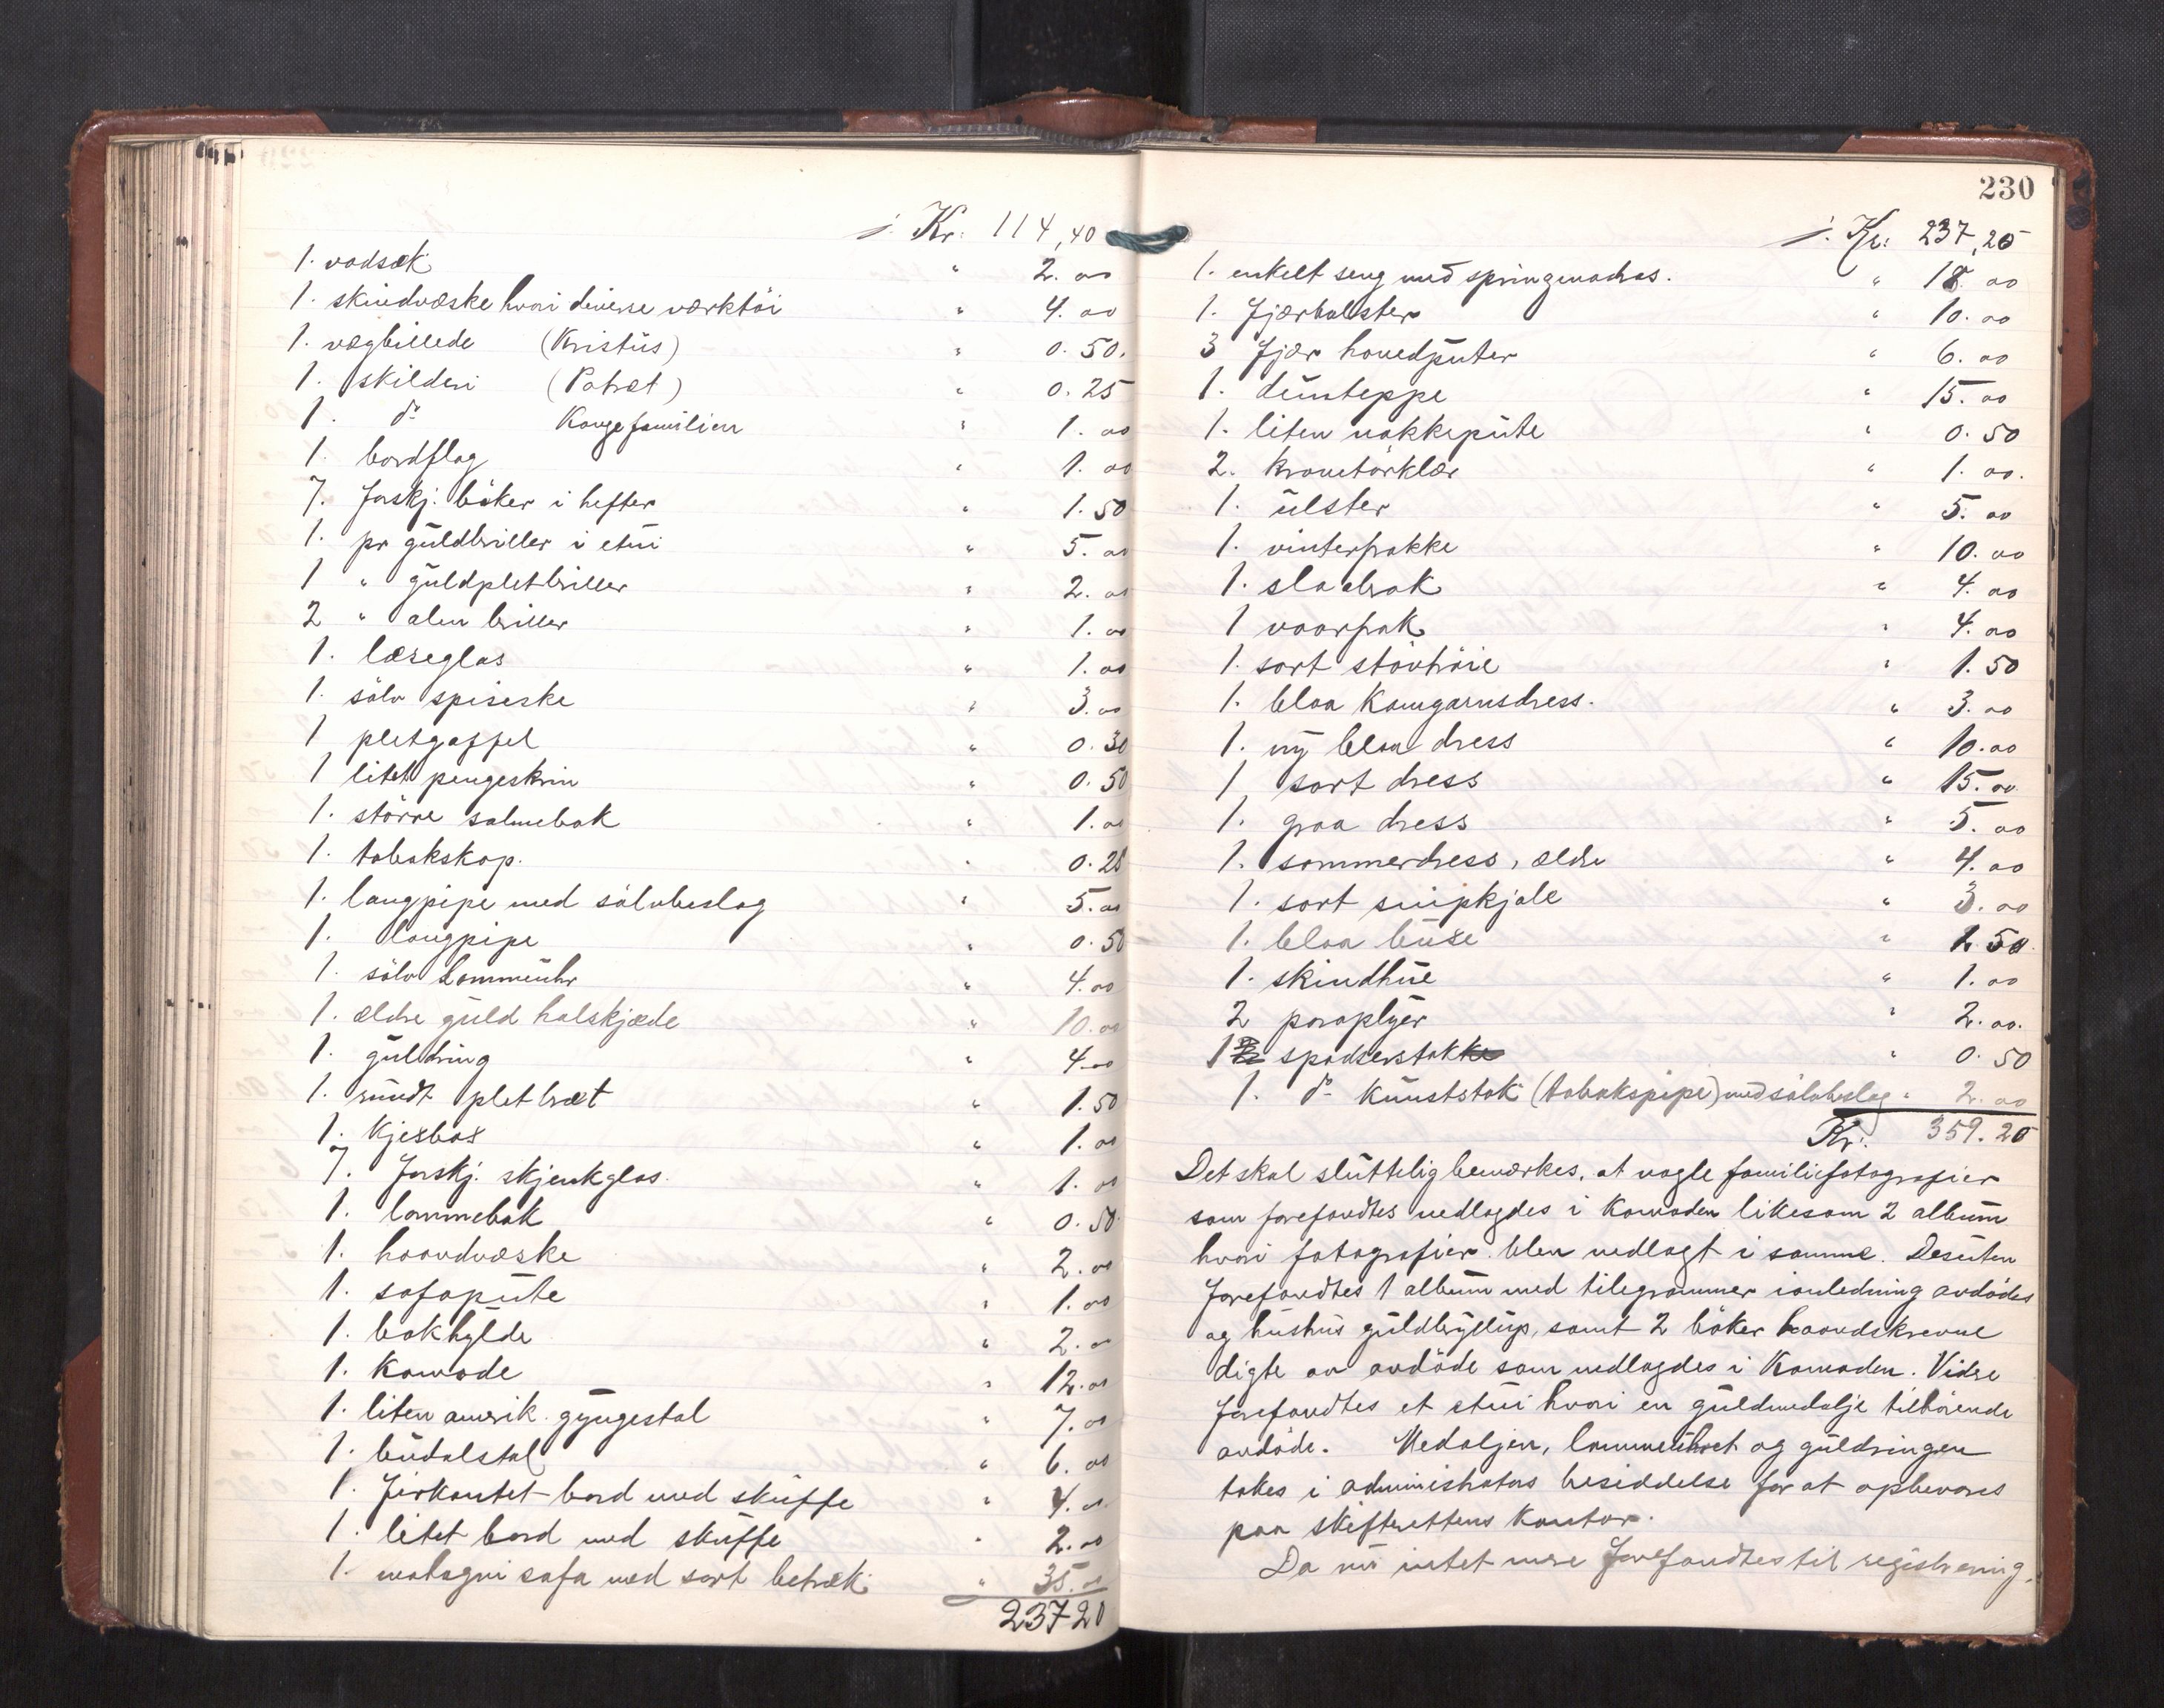 ÷ Kr: 114,40
1. vadsæk " 2.00
1. skindvæske hvori diverse værktöi " 4.00
1. vægbillede (Kristus) " 0.50.
1. skilderi (Patræt) " 0.25
1. do Kongefamilien " 1.00
1. bordflag " 1.00
7. forskj. böker i hefter " 1.50
1. pr guldbriller i etui " 5.00
1 " guldpletbriller " 2.00
2 " alm briller " 1.00
1. læseglas " 1.00
1. sölv spiseske " 3.00
1 pletgaffel " 0.30
1 litet pengeskrin " 0.50
1. större salmebok " 1.00
1. tobakskop. " 0.25
1. langpipe med sölvbeslag " 5.00
1. langpipe " 0.50
1. sölv Lommeuhr " 4.00
1. ældre guld halskjæde " 10.00
1. guldring " 4.00
1. rundt pletbræt " 1.50
1. kjexbox " 1.00
7. forskj. skjenkglas. " 1.00
1. lommebok " 0.50
1. haandvæske " 2.00
1. sofapute " 1.00
1. bokhylde " 2.00
1. Komode " 12.00
1. liten amerik. gyngestol " 7.00
1. budalstol " 6.00
1. firkantet bord med skuffe " 4.00
1. litet bord med skuffe " 2.00
1. mahogni sofa med sort betræk " 35.00
237 20
230
÷ Kr: 237,20
1. enkelt seng med springmadras. " 18.00
1. fjærbolster " 10.00
3 fjær hovedputer " 6.00
1. dunteppe " 15.00
1. liten nakkepute " 0.50
2. kravetörklær " 1.00.
1. ulster " 5.00
1. vinterfrakke " 10.00
1. slabrok " 4.00
1 vaarfrak " 4.00
1. sort stövtröie " 1.50
1. blaa Kamgarnsdress. " 3.00
1. ny blaa dress " 10.00
1 sort dress " 15.00
1. graa dress " 5.00
1. sommerdress, ældre " 4.00
1. sort snipkjole " 3.00
1. blaa buxe " 1.50
1. skindhue " 1.00
2 paraplyer " 2.00.
1 spadserstokke " 0.50
1. do Kunststok (tobakspipe) med sölvbeslag " 2.00
Kr. 359.20
Det skal sluttelig bemærkes, at nogle familiefotografier
som forefandtes nedlagdes i Komoden likesom 2 album
hvori fotografier blev nedlagt i samme. Desuten
forefandtes 1 album med telegrammer i anledning avdödes
og hustrus guldbryllup, samt 2 böker haandskrevne
digte av avdöde som nedlagdes i Komoden. Vidre
forefandtes et etui hvori en guldmedalje tilhörende
avdöde. Medaljen, lommeuhret og guldringen
tokes i administrators besiddelse for at opbevares
paa skifterettens Kontor.
Da nu intet mere forefandtes til registrering.